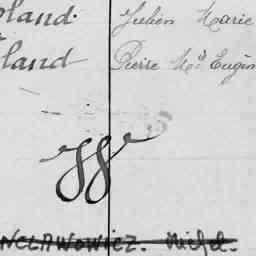 land. Julien Marie
land Pierre Md Eugèn
NCLAWOWIEZ. Michel.